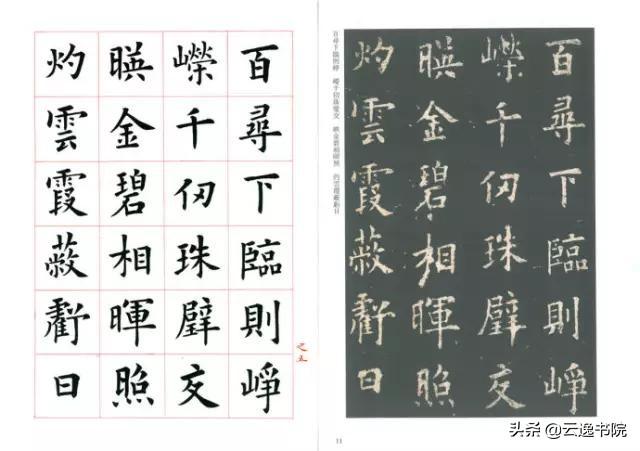 百尋下臨則崢
嶸千仞珠璧交
暎金碧相暉照
灼雲霞蔽虧日
百尋下臨則崢 嶸千仞珠璧交 映金碧相暉照 灼雲霞蔽虧日
11
百尋下臨則崢
嶸千仞珠璧交
暎金碧相暉照
灼雲霞蔽虧日
之五
头条 @云逸书院